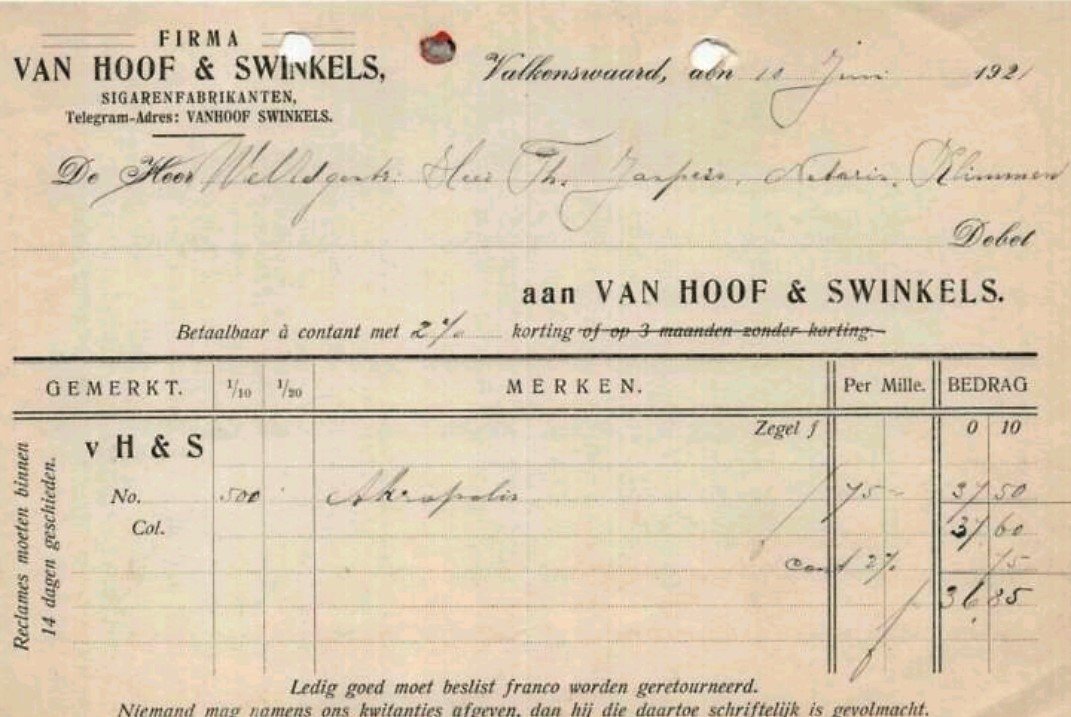 FIRMA
VAN HOOF & SWINKELS,
SIGARENFABRIKANTEN,
Telegram-Adres: VANHOOF SWINKELS.
Valkenswaard, den 10 Juni 1921
De Heer WelEdgestr. Heer Th. Jaspers, Notaris, Klimmen
Debet
aan VAN HOOF & SWINKELS.
Betaalbaar à contant met 2% korting of op 3 maanden zonder korting.
GEMERKT. 1/10 1/20 MERKEN. Per Mille. BEDRAG
Zegel f 0 10
v H & S
No. 500 Akropolis f 75 - 37 50
Col. 37 60
cont 2% 75
f 36 85
Reclames moeten binnen
14 dagen geschieden.
Ledig goed moet beslist franco worden geretourneerd.
Niemand mag namens ons kwitanties afgeven, dan hij die daartoe schriftelijk is gevolmacht.